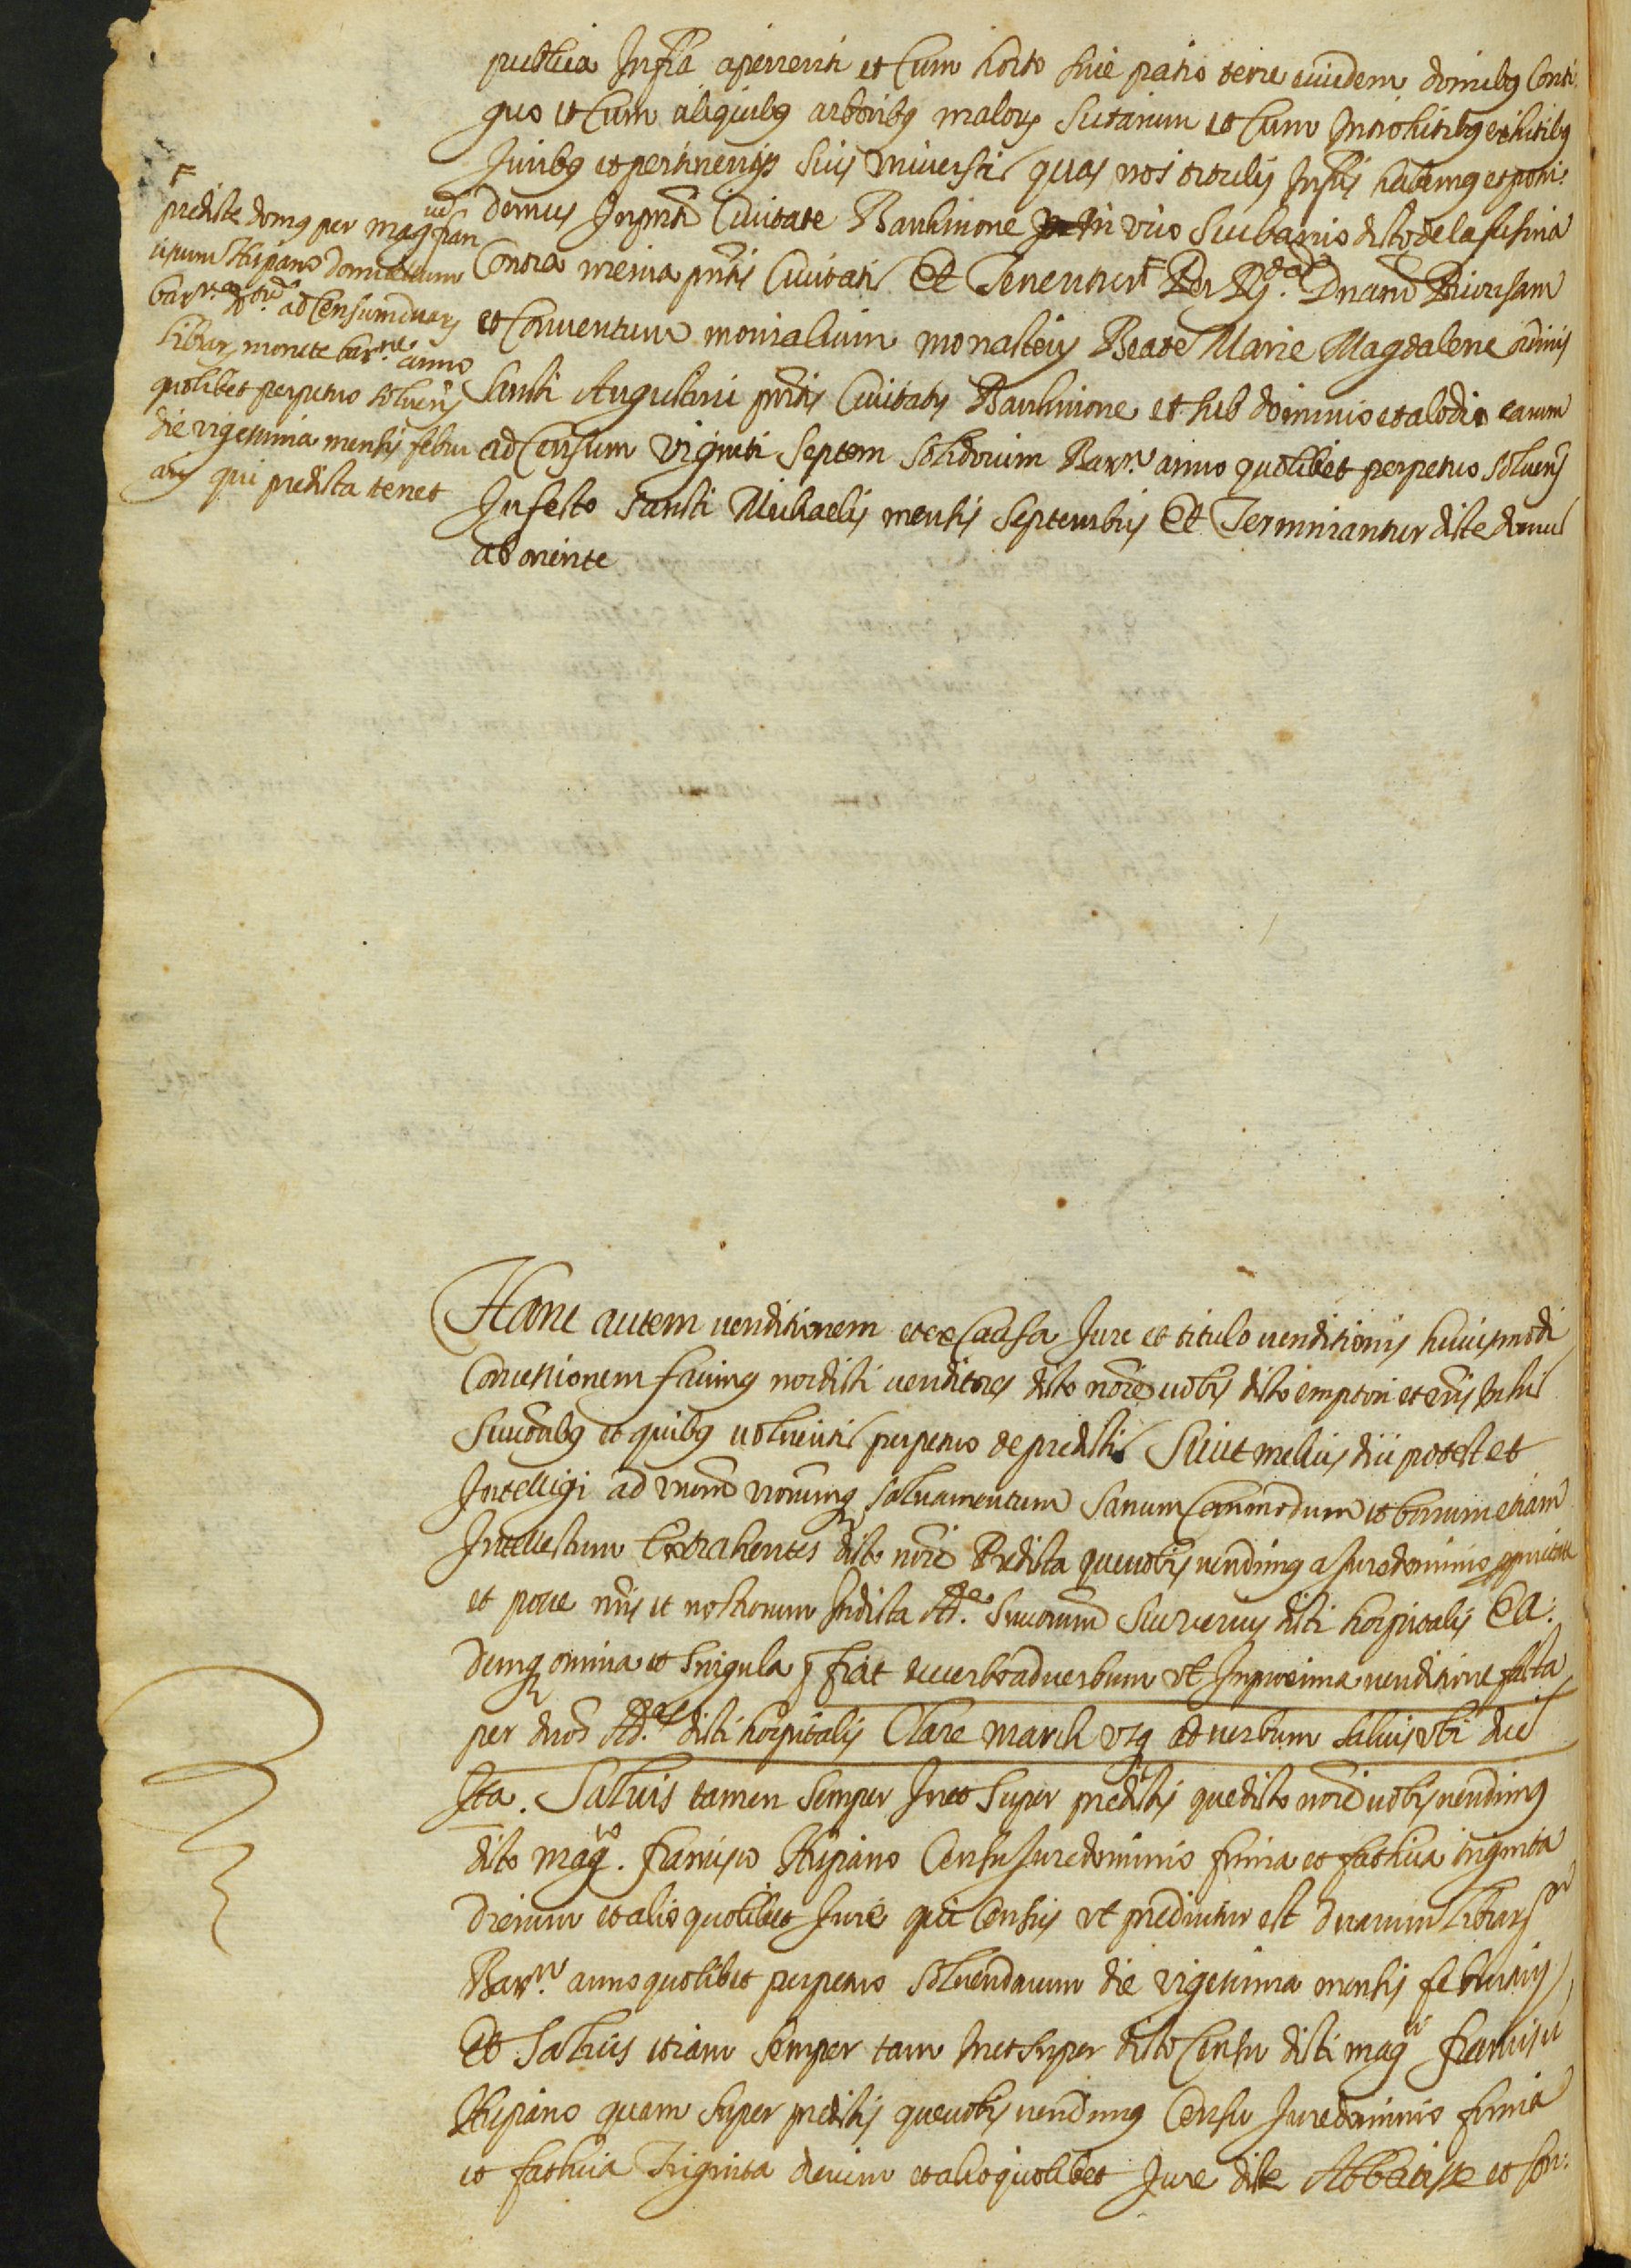 publica Infra aperienti et Cum horto sive patio terre eiusdem domibg Conti:
guo et Cum aliquibg arboribg malorz Sitanum et Cum Introhitibg exhitibg
Juribg et pertinentijs suis universis quas nos titulis Infris habemg et possi:
demus In pnti Civitate Barchinone In vico Suburbano dicto de la fusina
Contra menia pntis Civitatis Et Tenentur Γ Per Rdam. Dnam Priorissam
et Conventum monialium monasterij Beate Marie Magdalene ordinis
Sancti Augustini pntis Civitatis Barchinone et sub dominio et alodio earum
ad Censum viginti septem solidorum Barne. anno quolibet perpetuo solvens
In festo sancti Michaelis mensis septembris Et Terminantur dicte domus
ab oriente
Γ
predicte domg per magcum fran
ciscum Hispano domicellum
Barne. ad Censum duarz
librarz monete barne. anno
quolibet perpetuo solvens
die vigesima mensis febru
arij qui predicta tenet
Hanc autem venditionem et ex Causa Jure et titulo venditionis huiusmodi
Concessionem facimg nos dicti venditores dicto noie vobis dicto emptori et vris In his
Successoribg et quibg volueritis perpetuo de predictis Sicut melius dici potest et
Intelligi ad vrum vrorumq salvamentum sanum Commodum et bonum etiam
Intellectum Extrahentes dicto noie Predicta que vobis vendimg a Jure dominio pprietate
et posse nris et nostrorum In dicta Adne. Successorum Sive verius dicti hospitalis Ea:
demq omnia et singula Fiat de verbo ad verbum vt In proxima venditione facta
per dnos Adres. dicti hospitalis Clare March vsq ad verbum salvis vbi dici
Ita. Salvis tamen semper In et super predictis que dicto noie vobis vendimg
dicto magco. francisco Hispano Censu Jure dominio firma et fathica triginta
dierum et alio quolibet Jure qui Censis vt predicitur est duarum librarz
Barne. anno quolibet perpetuo solvendarum die vigesima mensis februarij
Et salvis etiam semper tam In et super dicto Censu dicti magci francisci
Hispano quam super predictis que vobis vendimg Censu Jure dominio firma
et fathica Triginta dierum et alio quolibet Jure dicte Abbatisse et Con: